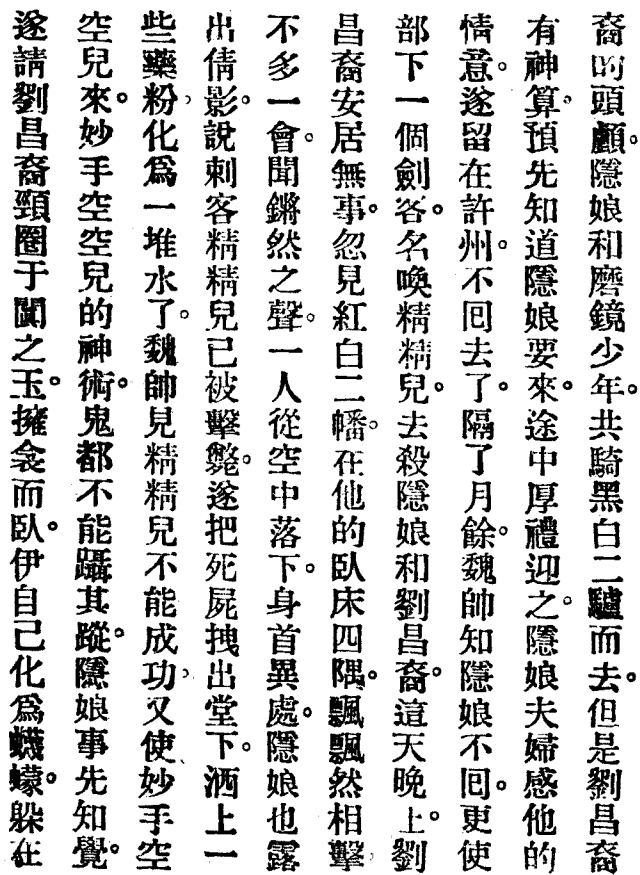 裔的頭顱。隱娘和磨鏡少年。共騎黑白二驢而去。但是劉昌裔
有神算。預先知道隱娘要來。途中厚禮迎之。隱娘夫婦感他的
情意。遂留在許州。不囘去了。隔了月餘。魏帥知隱娘不囘。更使
部下一個劍客。名喚精精兒。去殺隱娘和劉昌裔。這天晚上。劉
昌裔安居無事。忽見紅白二幡。在他的臥床四隅。飄飄然相擊、
不多一會。聞鏘然之聲。一人從空中落下。身首異處。隱娘也露
出倩影。說刺客精精兒已被擊斃。遂把死屍拽出堂下。洒上一
些藥粉、化爲一堆水了。魏帥見精精兒不能成功、又使妙手空
空兒來。妙手空空兒的神術。鬼都不能躡其蹤。隱娘事先知覺。
遂請劉昌裔頸圈于闐之玉。擁衾而臥。伊自己化爲蠛蠓。躲在